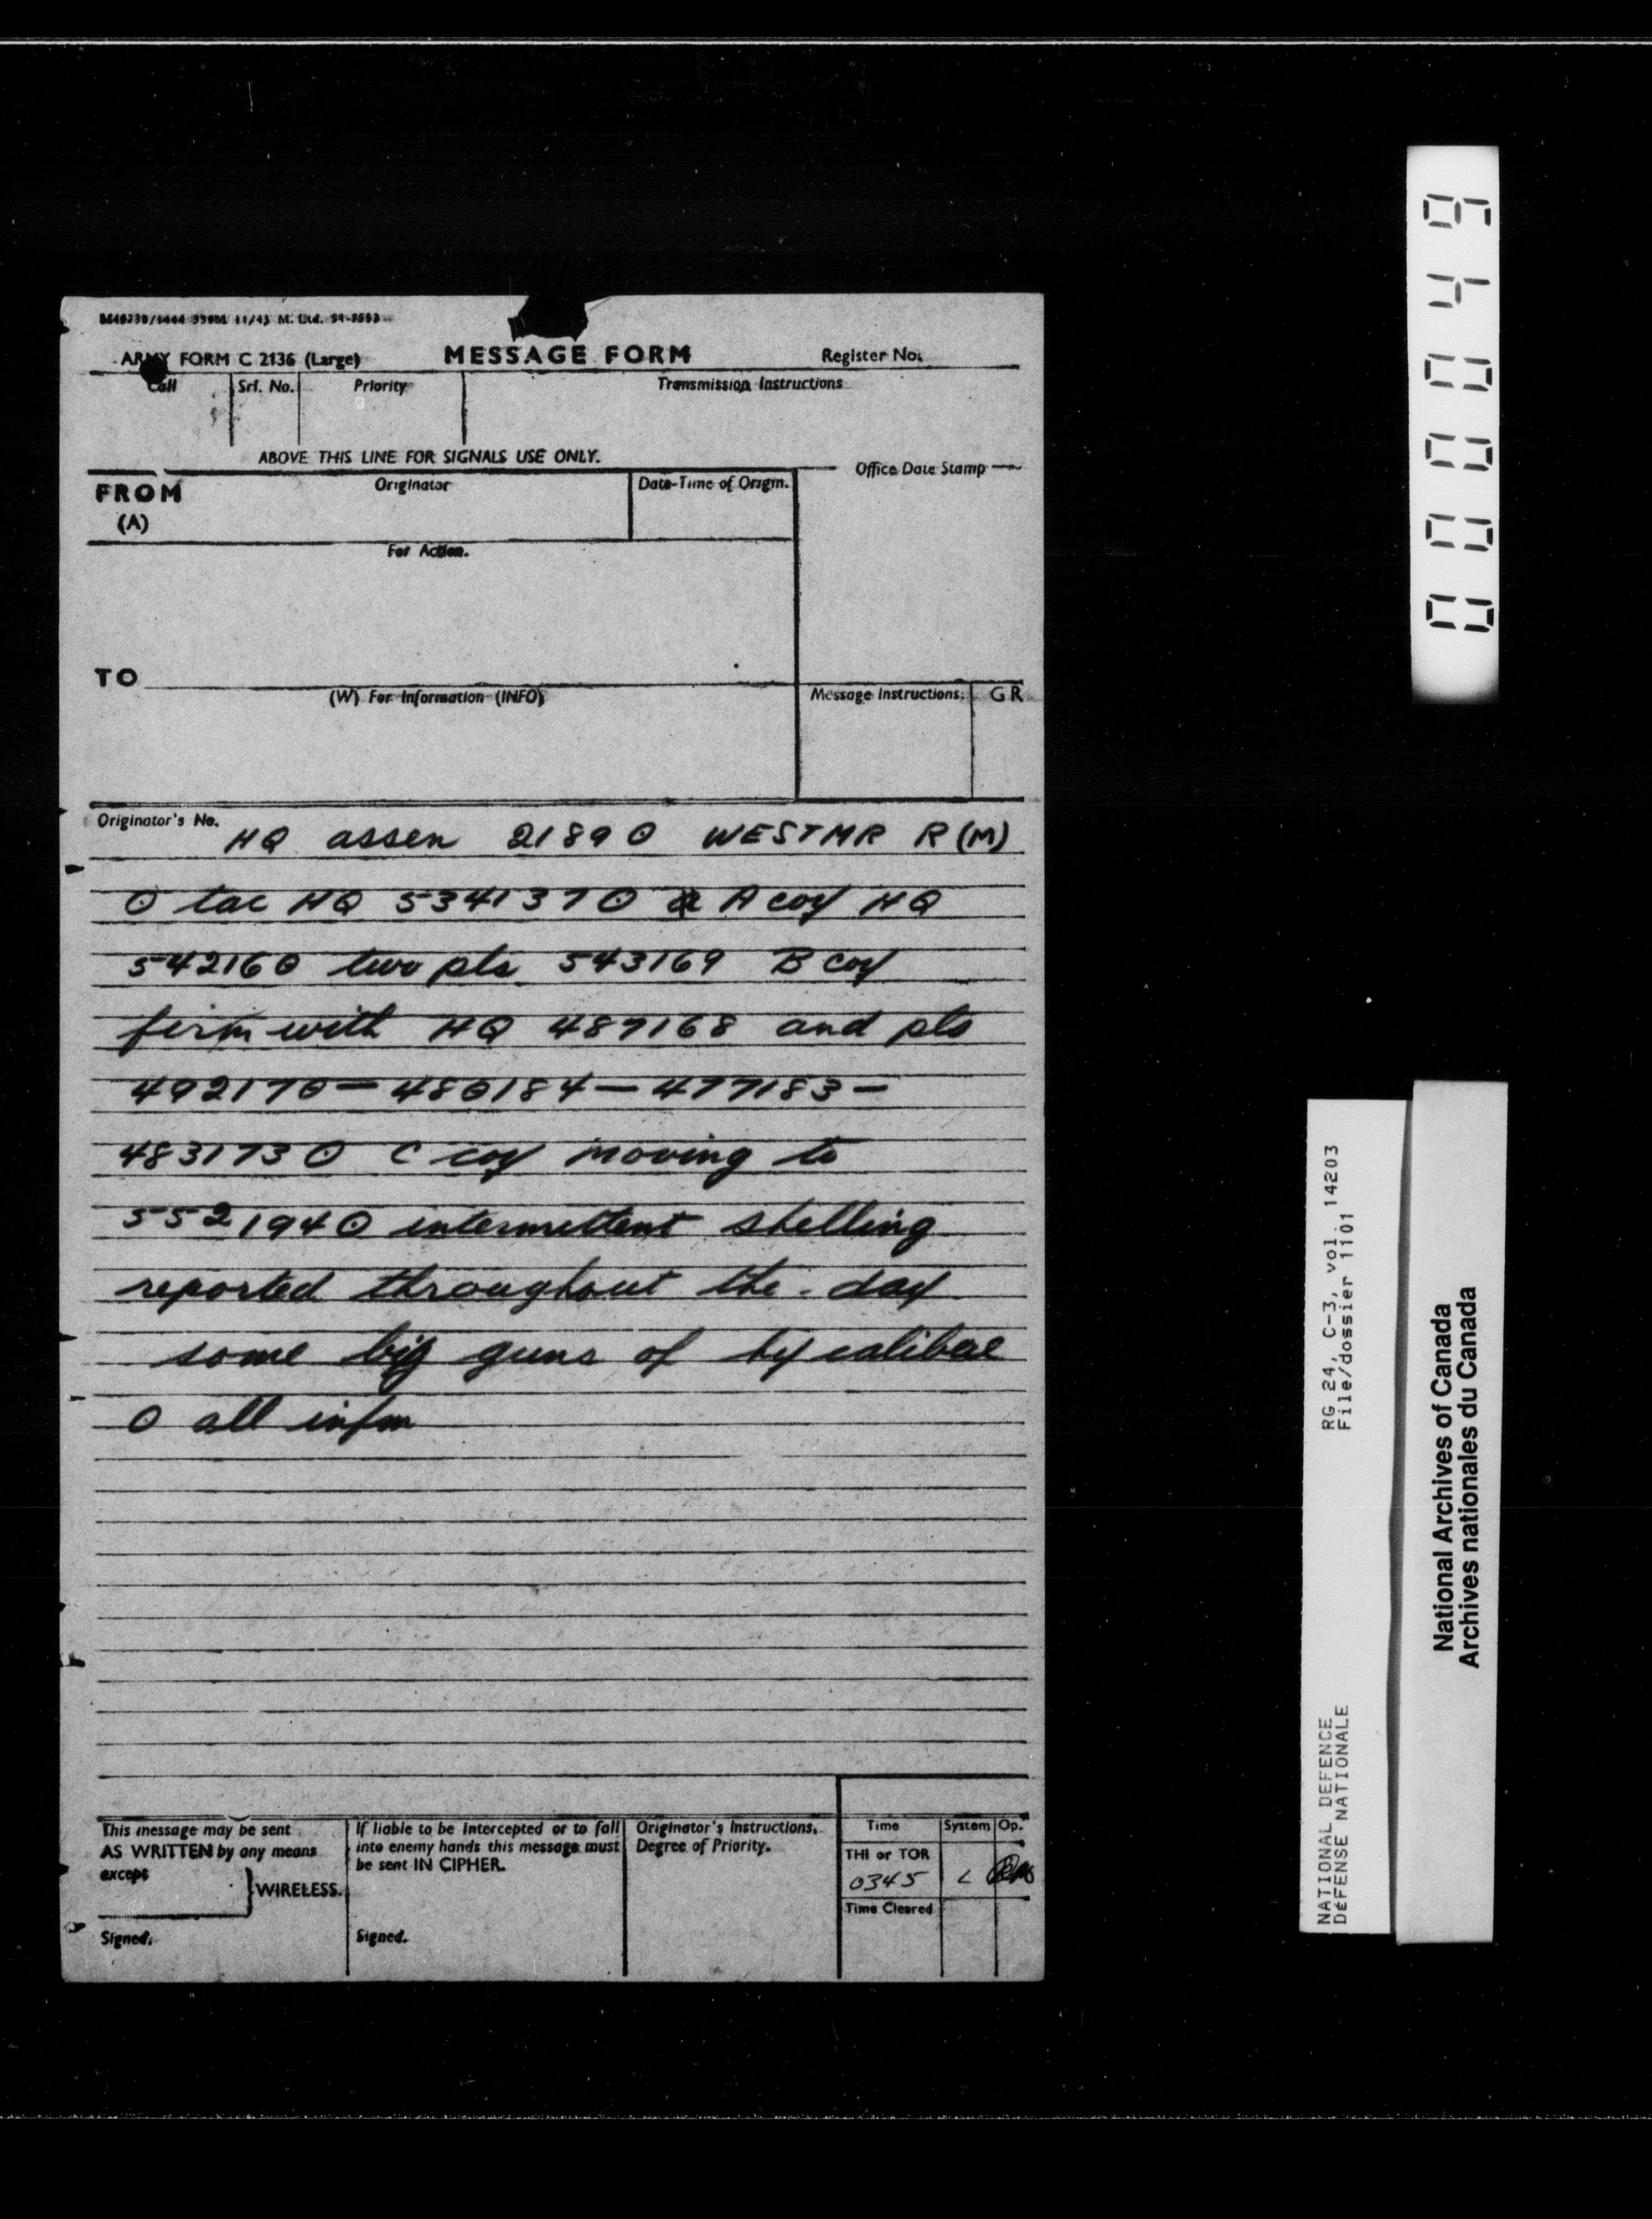 ARMY FORM C 2136 (Large)
MESSAGE FORM
Register No.
Call
Srl. No.
Priority
Transmission Instructions
ABOVE THIS LINE FOR SIGNALS USE ONLY.
FROM
(A)
Originator
Date-Time of Origin.
Office Date Stamp
For Action.
TO
(W) For Information (INFO)
Message Instructions.
GR
Originator's No.
HQ assen 2189 ⊙ WESTMR R (M)
⊙ tac HQ 534137 ⊙ A coy HQ
542160 two pls 543169 B coy
firm with HQ 487168 and pls
492170 — 480184 — 477183 —
483173 ⊙ C coy moving to
552194 ⊙ intermittent shelling
reported throughout the day
some big guns of hy calibre
⊙ all infm
This message may be sent
AS WRITTEN by any means
except
WIRELESS.
Signed.
If liable to be intercepted or to fall
into enemy hands this message must
be sent IN CIPHER.
Signed.
Originator's Instructions.
Degree of Priority.
Time
System
Op.
THI or TOR
0345
L
Time Cleared
00049
RG 24, C-3, vol. 14203
File/dossier 1101
NATIONAL DEFENCE
DÉFENSE NATIONALE
National Archives of Canada
Archives nationales du Canada